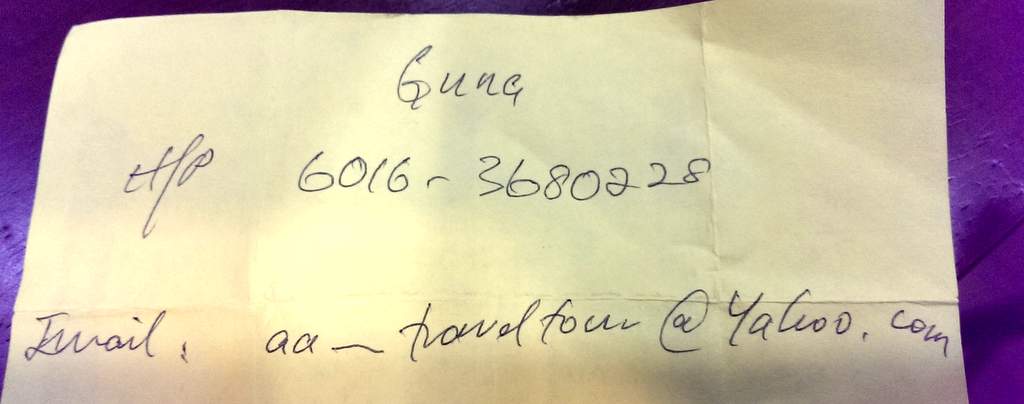 Guna
H/P 6016-3680228
Email. aa_traveltour@Yahoo.com